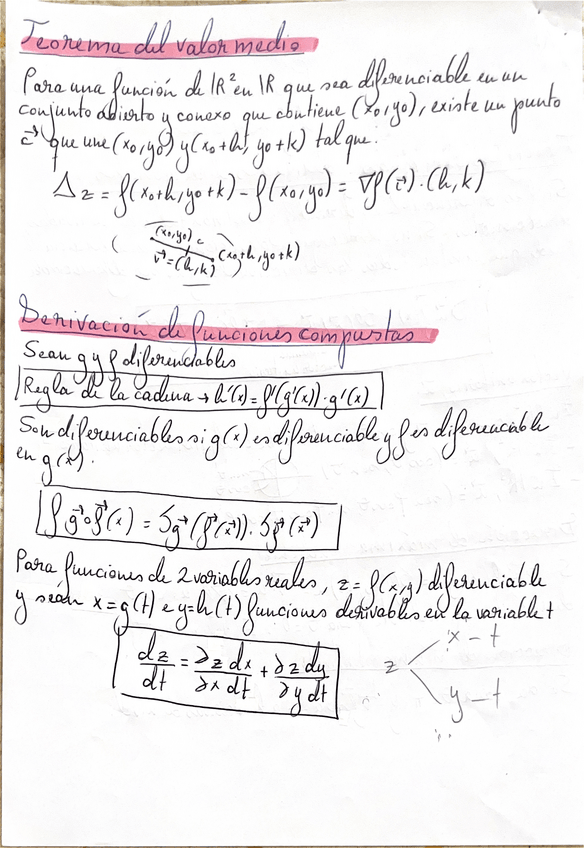 Teorema del valor medio
Para una función de ℝ² en ℝ que sea diferenciable en un
conjunto abierto y conexo que contiene (x₀,y₀), existe un punto
c⃗ que une (x₀,y₀) y (x₀+h, y₀+k) tal que:
Δz = f(x₀+h, y₀+k) - f(x₀,y₀) = ∇f(c⃗)·(h,k)
(x₀,y₀) c
v⃗=(h,k) (x₀+h, y₀+k)
Derivación de funciones compuestas
Sean g y f diferenciables
Regla de la cadena → h'(x) = f'(g'(x))·g'(x)
Son diferenciables si g(x) es diferenciable y f es diferenciable
en g(x).
J g⃗∘f⃗(x) = Jg⃗(f⃗(x⃗))·Jf⃗(x⃗)
Para funciones de 2 variables reales, z = f(x,y) diferenciable
y sean x=g(t) e y=h(t) funciones derivables en la variable t
dz/dt = ∂z/∂x dx/dt + ∂z/∂y dy/dt
x - t
z
y - t